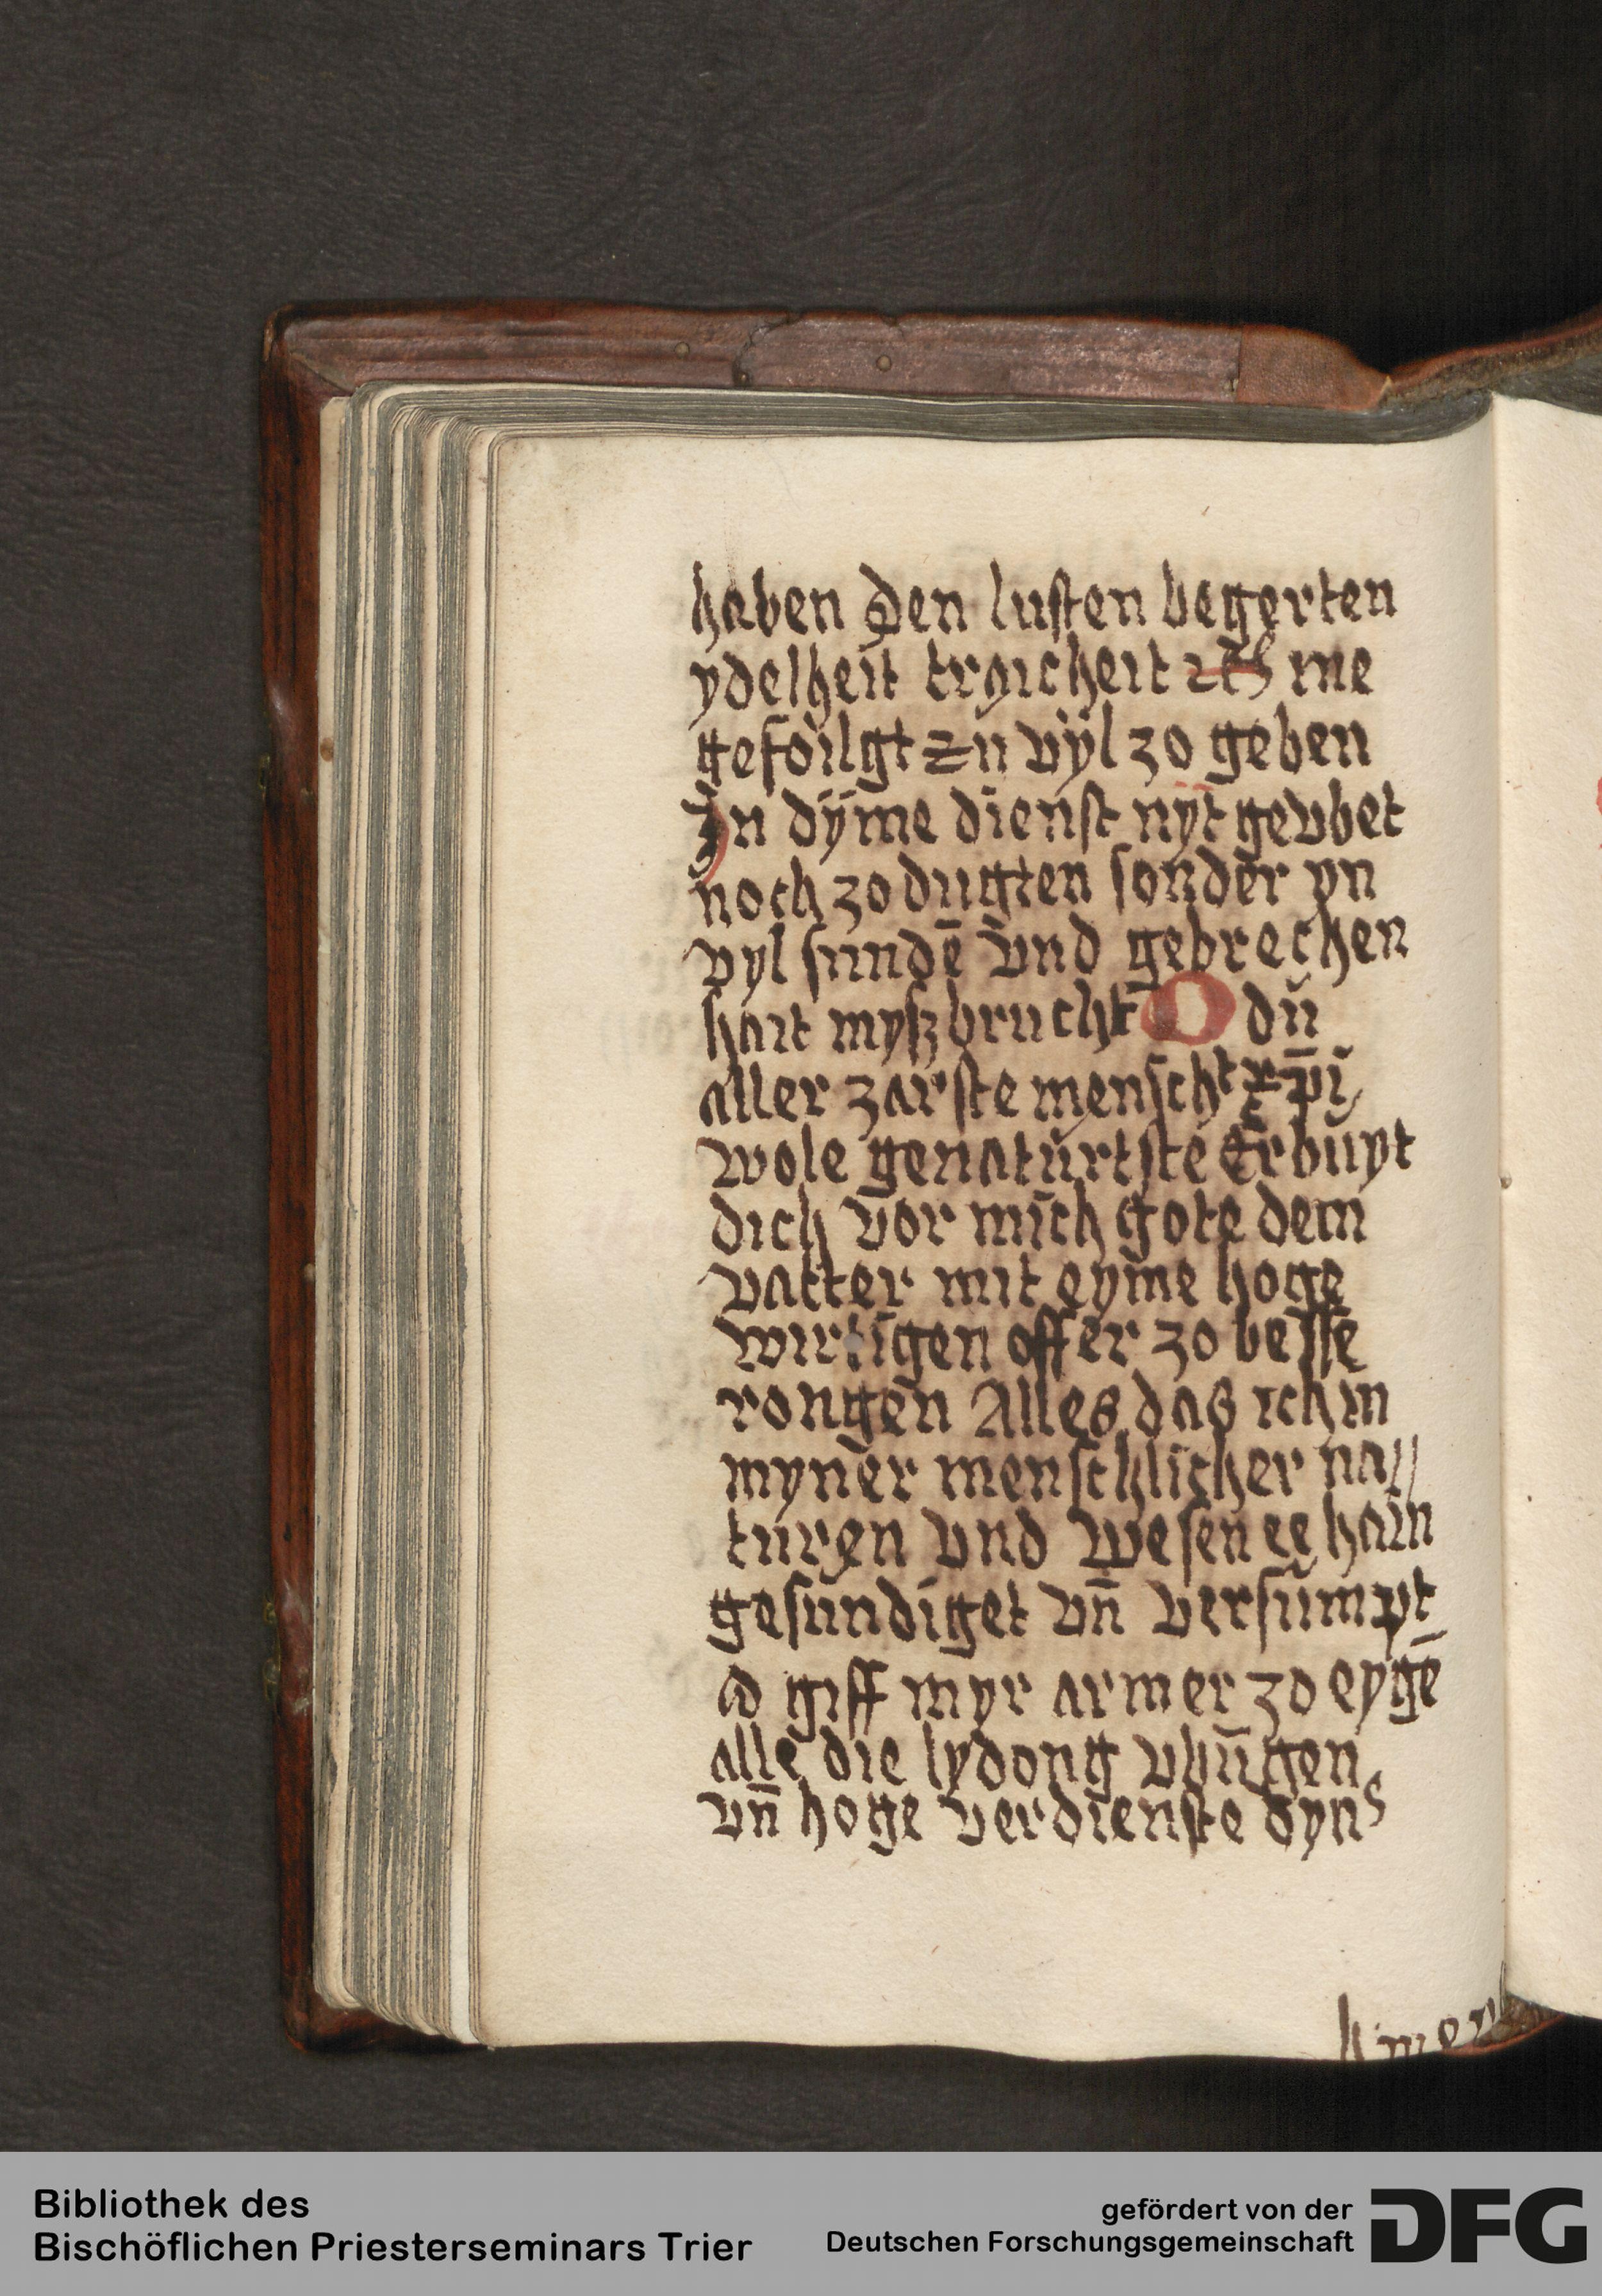 haben den lusten begerten
ydelheit traicheit me
gefoilgt zu vyl zo geben
In dyme dienst nyt geubet
noch zo dugten sonder yn
vyl sundē vnd gebrechen
hait myszbrucht O du
aller zarste menscht xp̄i
wole genaturtste Erbuyt
dich vor mich gote dem
vatter mit eyme hoge
wirtigen offer zo besse
rongen Alles das ich in
myner menschlicher na//
turen vnd wesen ee hain
gesundiget vn̄ versumpt
giff myr armer zo eygē
alle die lydong vbūgen
vn̄ hoge verdienste dyns
Bibliothek des
Bischöflichen Priesterseminars Trier
gefördert von der
Deutschen Forschungsgemeinschaft
DFG